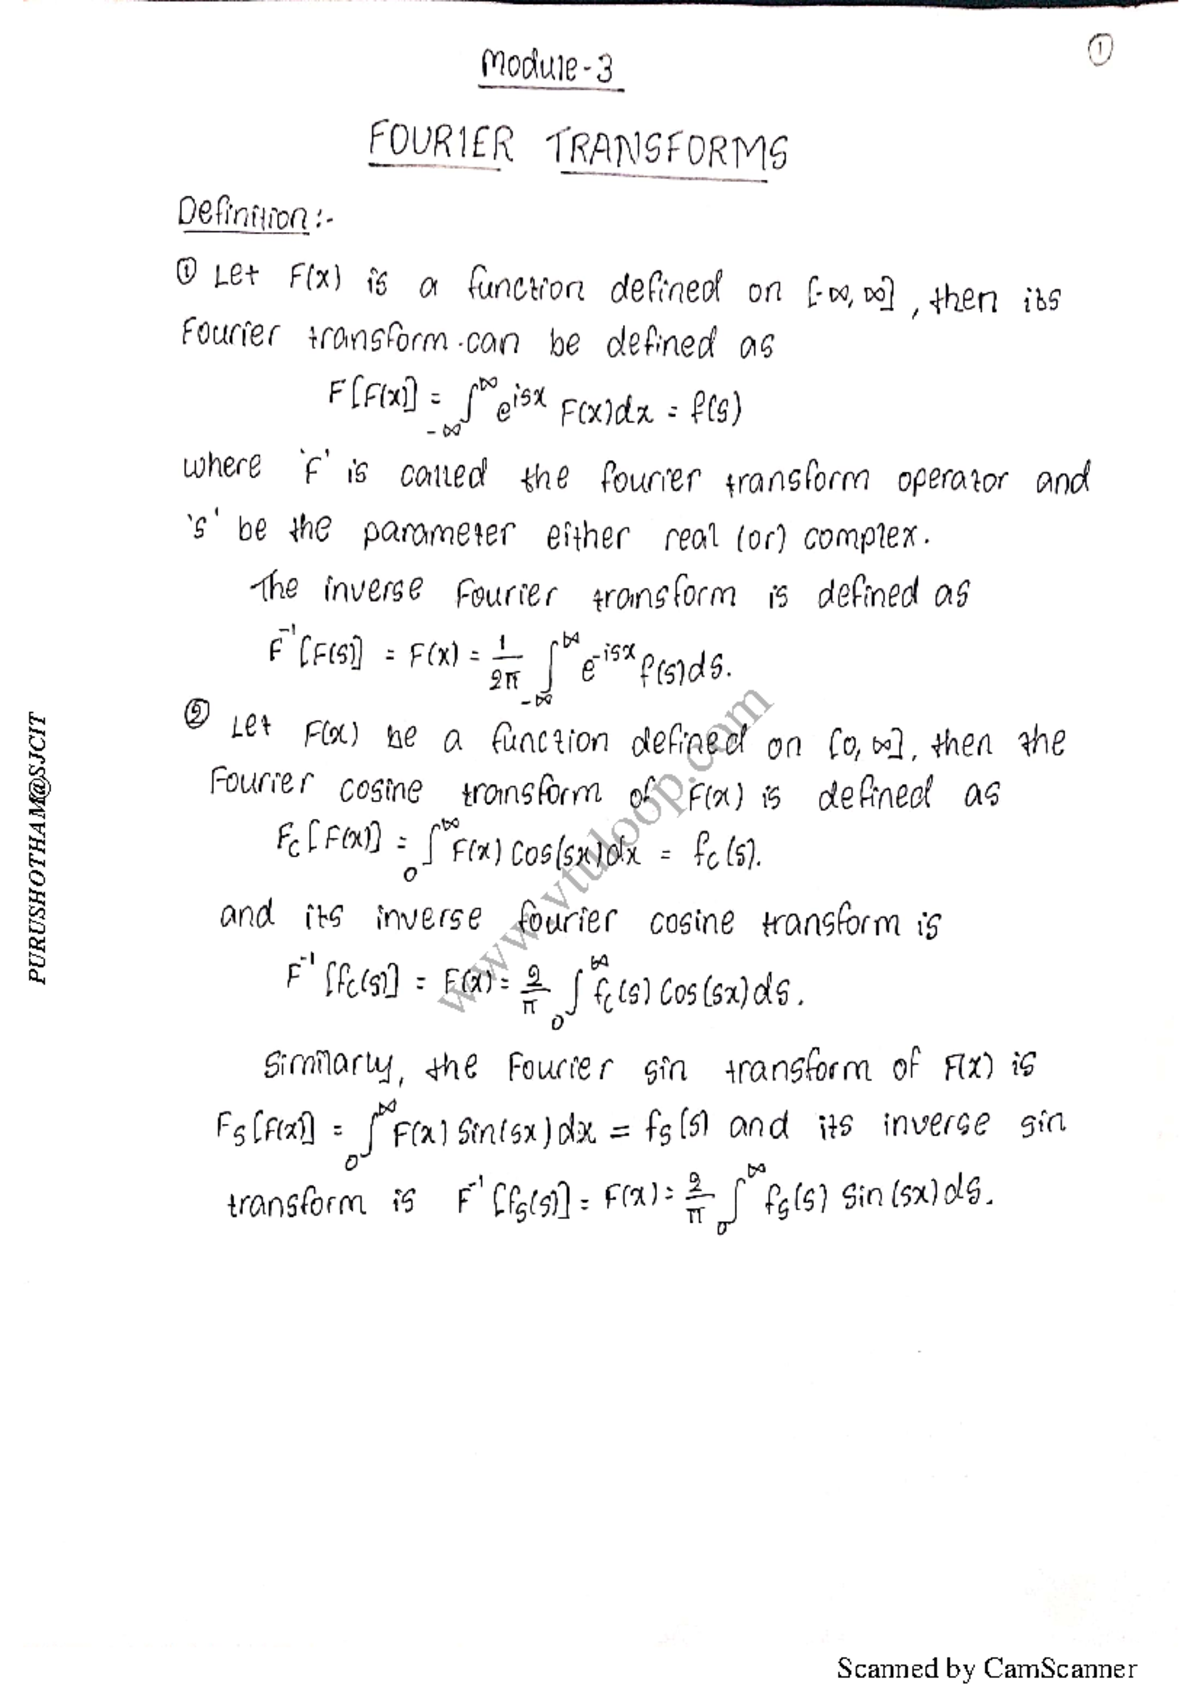 ①
Module-3
FOURIER TRANSFORMS
Definition:-
① Let F(x) is a function defined on [-∞, ∞], then its
Fourier transform can be defined as
F[F(x)] = ∫_{-∞}^{∞} e^{isx} F(x)dx = f(s)
where 'F' is called the fourier transform operator and
's' be the parameter either real (or) complex.
The inverse Fourier transform is defined as
F^{-1}[F(s)] = F(x) = \frac{1}{2π} ∫_{-∞}^{∞} e^{-isx} f(s)ds.
② Let F(x) be a function defined on [0, ∞], then the
Fourier cosine transform of F(x) is defined as
F_c[F(x)] = ∫_{0}^{∞} F(x) Cos(sx)dx = f_c(s).
and its inverse fourier cosine transform is
F^{-1}[f_c(s)] = F(x) = \frac{2}{π} ∫_{0}^{∞} f_c(s) Cos(sx)ds.
Similarly, the Fourier sin transform of F(x) is
F_s[F(x)] = ∫_{0}^{∞} F(x) Sin(sx)dx = f_s(s) and its inverse sin
transform is F^{-1}[f_s(s)] = F(x) = \frac{2}{π} ∫_{0}^{∞} f_s(s) Sin(sx)ds.
PURUSHOTHAM@SJCIT
www.vtuloop.com
Scanned by CamScanner